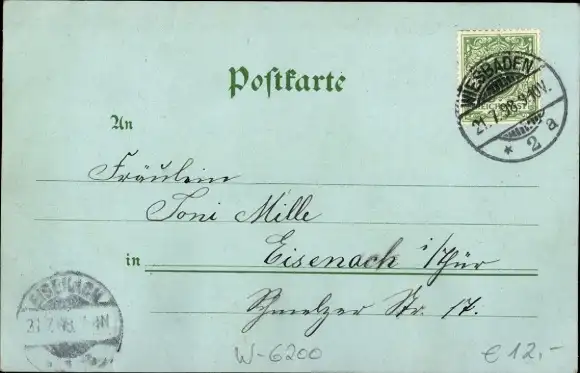 Postkarte
WIESBADEN
21.7.98. 9-10V.
* 2 a
An
Fräulein
Toni Mille
in Eisenach i/Thür
Schmelzer Str. 17.
EISENACH
21.7.98.
W-6200
€12,-